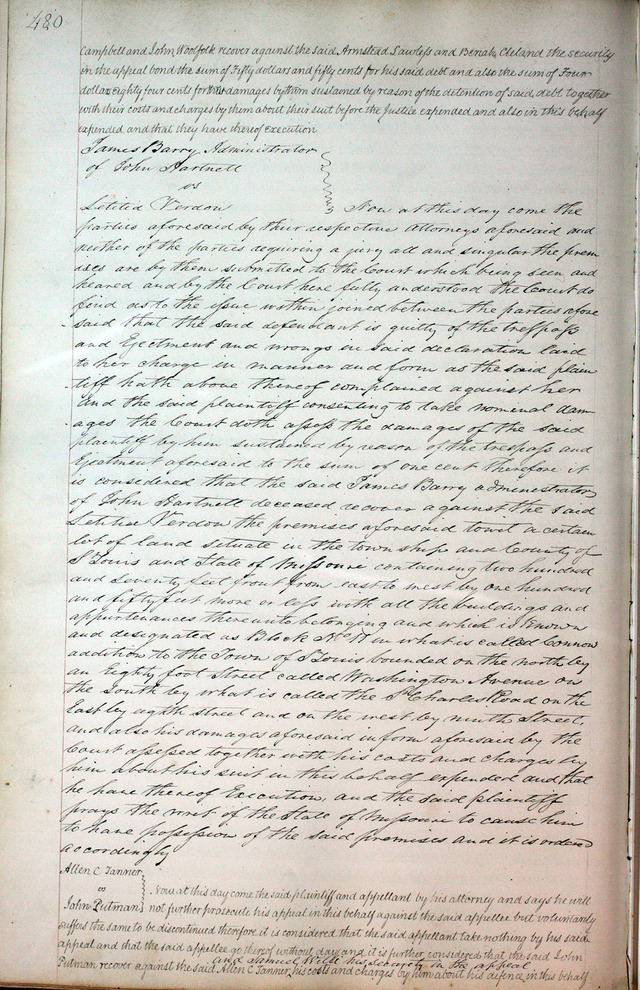 480
Campbell and John Woolfolk recover against the said Armstead Lawless and Benah Cleland the security
in the appeal bond the sum of Fifty dollars and fifty cents for his said debt and also the sum of Four
dollars eighty four cents for the damages by them sustained by reason of the detention of said debt together
with their costs and charges by them about their suit before the Justice expended and also in this behalf
expended and that they have thereof execution
James Barry Administrator
of John Hartnett
vs
Letitia Verdon Now at this day come the
parties aforesaid by their respective Attorneys aforesaid and
neither of the parties requiring a jury all and singular the prem
ises are by them submitted to the Court which being seen and
heared and by the Court here fully understood the Court do
find as to the issue within joined between the parties afore
said that the said defendant is guilty of the tresspass
and Ejectment and wrongs in said declaration laid
to her charge in manner and form as the said plain
tiff hath above thereof complained against her
and the said plaintiff consenting to take nominal dam
ages the Court doth assess the damages of the said
plaintiff by him sustained by reason of the trespass and
Ejectment aforesaid to the sum of one cent therefore it
is considered that the said James Barry administrator
of John Hartnett deceased recover against the said
Letitia Verdon the premises aforesaid towit a certain
lot of land situate in the town ship and County of
St Louis and State of Missouri containing two hundred
and seventy feet front from east to west by one hundred
and fifty feet more or less with all the buildings and
appurtenances thereunto belonging and which is Known
and designated as Block No in what is called Connow
addition to the Town of St Louis bounded on the north by
an Eighty foot street called Washington Avenue on
the south by what is called the St Charles Road on the
East by eighth street and on the west by ninth Street,
and also his damages aforesaid in form aforesaid by the
Court assessed together with his costs and charges by
him about his suit in this behalf expended and that
he have thereof Execution, and the said plaintiff
prays the writ of the State of Missouri to cause him
to have possession of the said premises and it is ordered
accordingly
Allen C Tanner
vs Now at this day come the said plaintiff and appellant by his attorney and says he will
John Putman not further prosecute his appeal in this behalf against the said appellee but voluntarily
suffers the same to be discontinued therefore it is considered that the said appellant take nothing by his said
appeal and that the said appellee go thereof without day and it is further considered that the said John
and Samuel Willi his security in the appeal
Putman recover against the said Allen C Tanner his costs and charges by him about his defence in this behalf